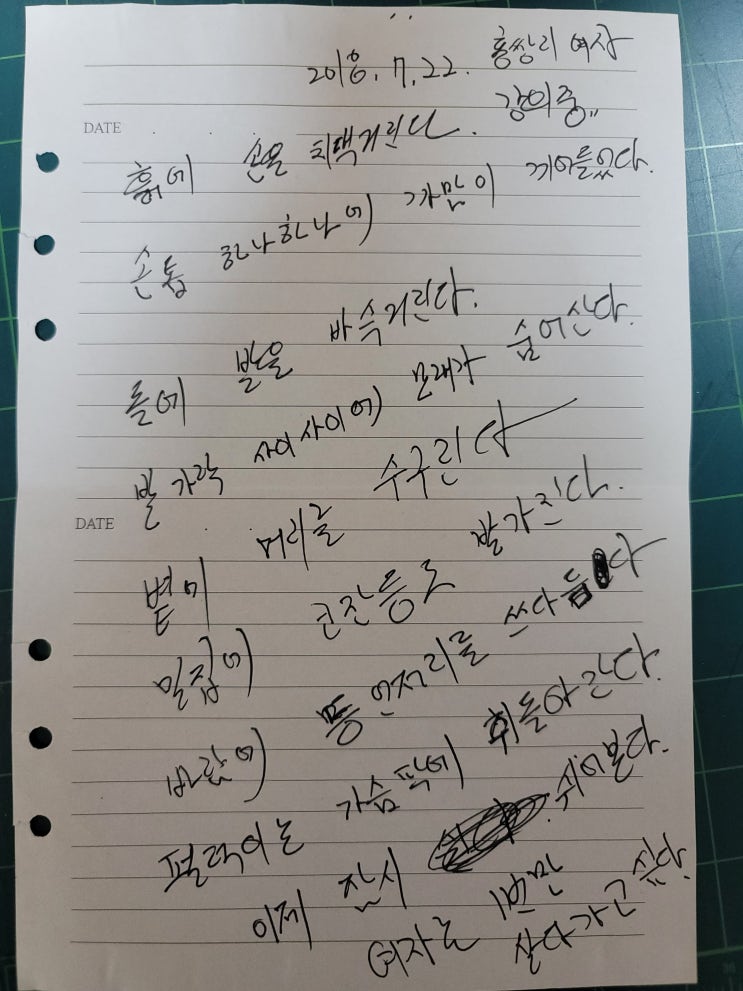 2018. 7. 22. 홍쌍리 여사
강의중..
DATE
흙에 손을 치댁거린다.
손톱 하나하나에 까맘이 끼어들었다.
돌에 발을 바숙거린다.
발가락 사이사이에 모래가 숨어산다.
DATE
볕이 머리를 수구린다
밀집이 큰잔등로 발가진다.
바람이 몽언저리를 쓰다듬다
펄럭이는 가슴팍에 휘돌아간다.
이제 잠시 쉬어본다.
여자로 1번만
살다가고 싶다.